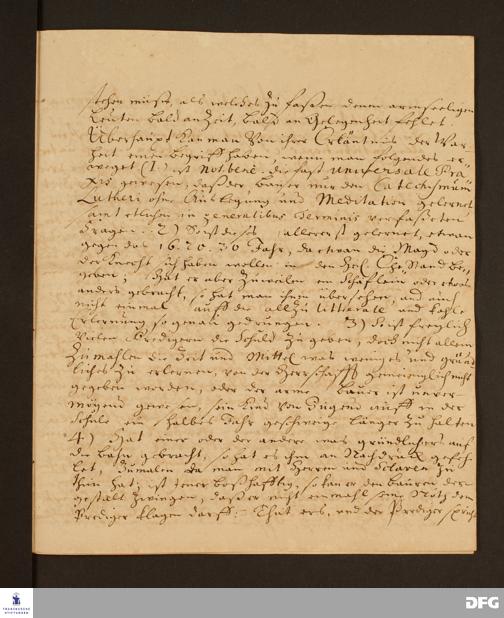 stehen müste, als welches zu fassen denen armseeligen
Leuten bald an Zeit, bald an Gelegenheit fehlet.
Überhaupt kan man von ihrer Erkäntnis der War-
heit einen begriff haben, wenn man folgendes er-
weget (1. ist notbene die fast universale Pra-
xis gewesen, daß der bauer nur den Catechismum
Lutheri ohne Auslegung und Meditation gelernet
samt etlichen in generalibus Terminis verfasseten
Fragen. 2) So ist dieses allererst gelernet, etwan
gegen das 16. 20. 30 Jahr, da etwan die Magd oder
der Knecht sich haben wollen in den Heil. Ehe Stand be-
geben; Hat er aber zuweilen ein Schäflein oder etwas
anders gebracht, so hat man ihm übersehen, und auch
nicht einmal auff die allzu litterale und kahle
Erlernung so genau gedrungen. 3) Ist freylich
vielen Predigern die Schuld zu geben, doch nicht allein
Zumahlen die Zeit und Mittel was weniges und gründ-
liches zu erlernen, von der Herrschafft gemeiniglich nicht
gegeben worden, oder der arme bauer ist unver-
mögend gewesen, sein Kind von Jugend auff in der
Schule ein halbes Jahr geschweige länger zu halten
4.) Hat einer oder der andere was gründliches auf
die bahn gebracht, so hat es ihm an Nachdruck gefeh-
let, zumalen da man mit Herren und Sclaven zu
thun hat; ist jener boßhafftig, so kan er den bauren der-
gestalt zwingen, daß er nicht einmahl seine Noth dem
Prediger klagen darff: Thut ers, und der Prediger spricht
FRANCKESCHE
STIFTUNGEN
DFG